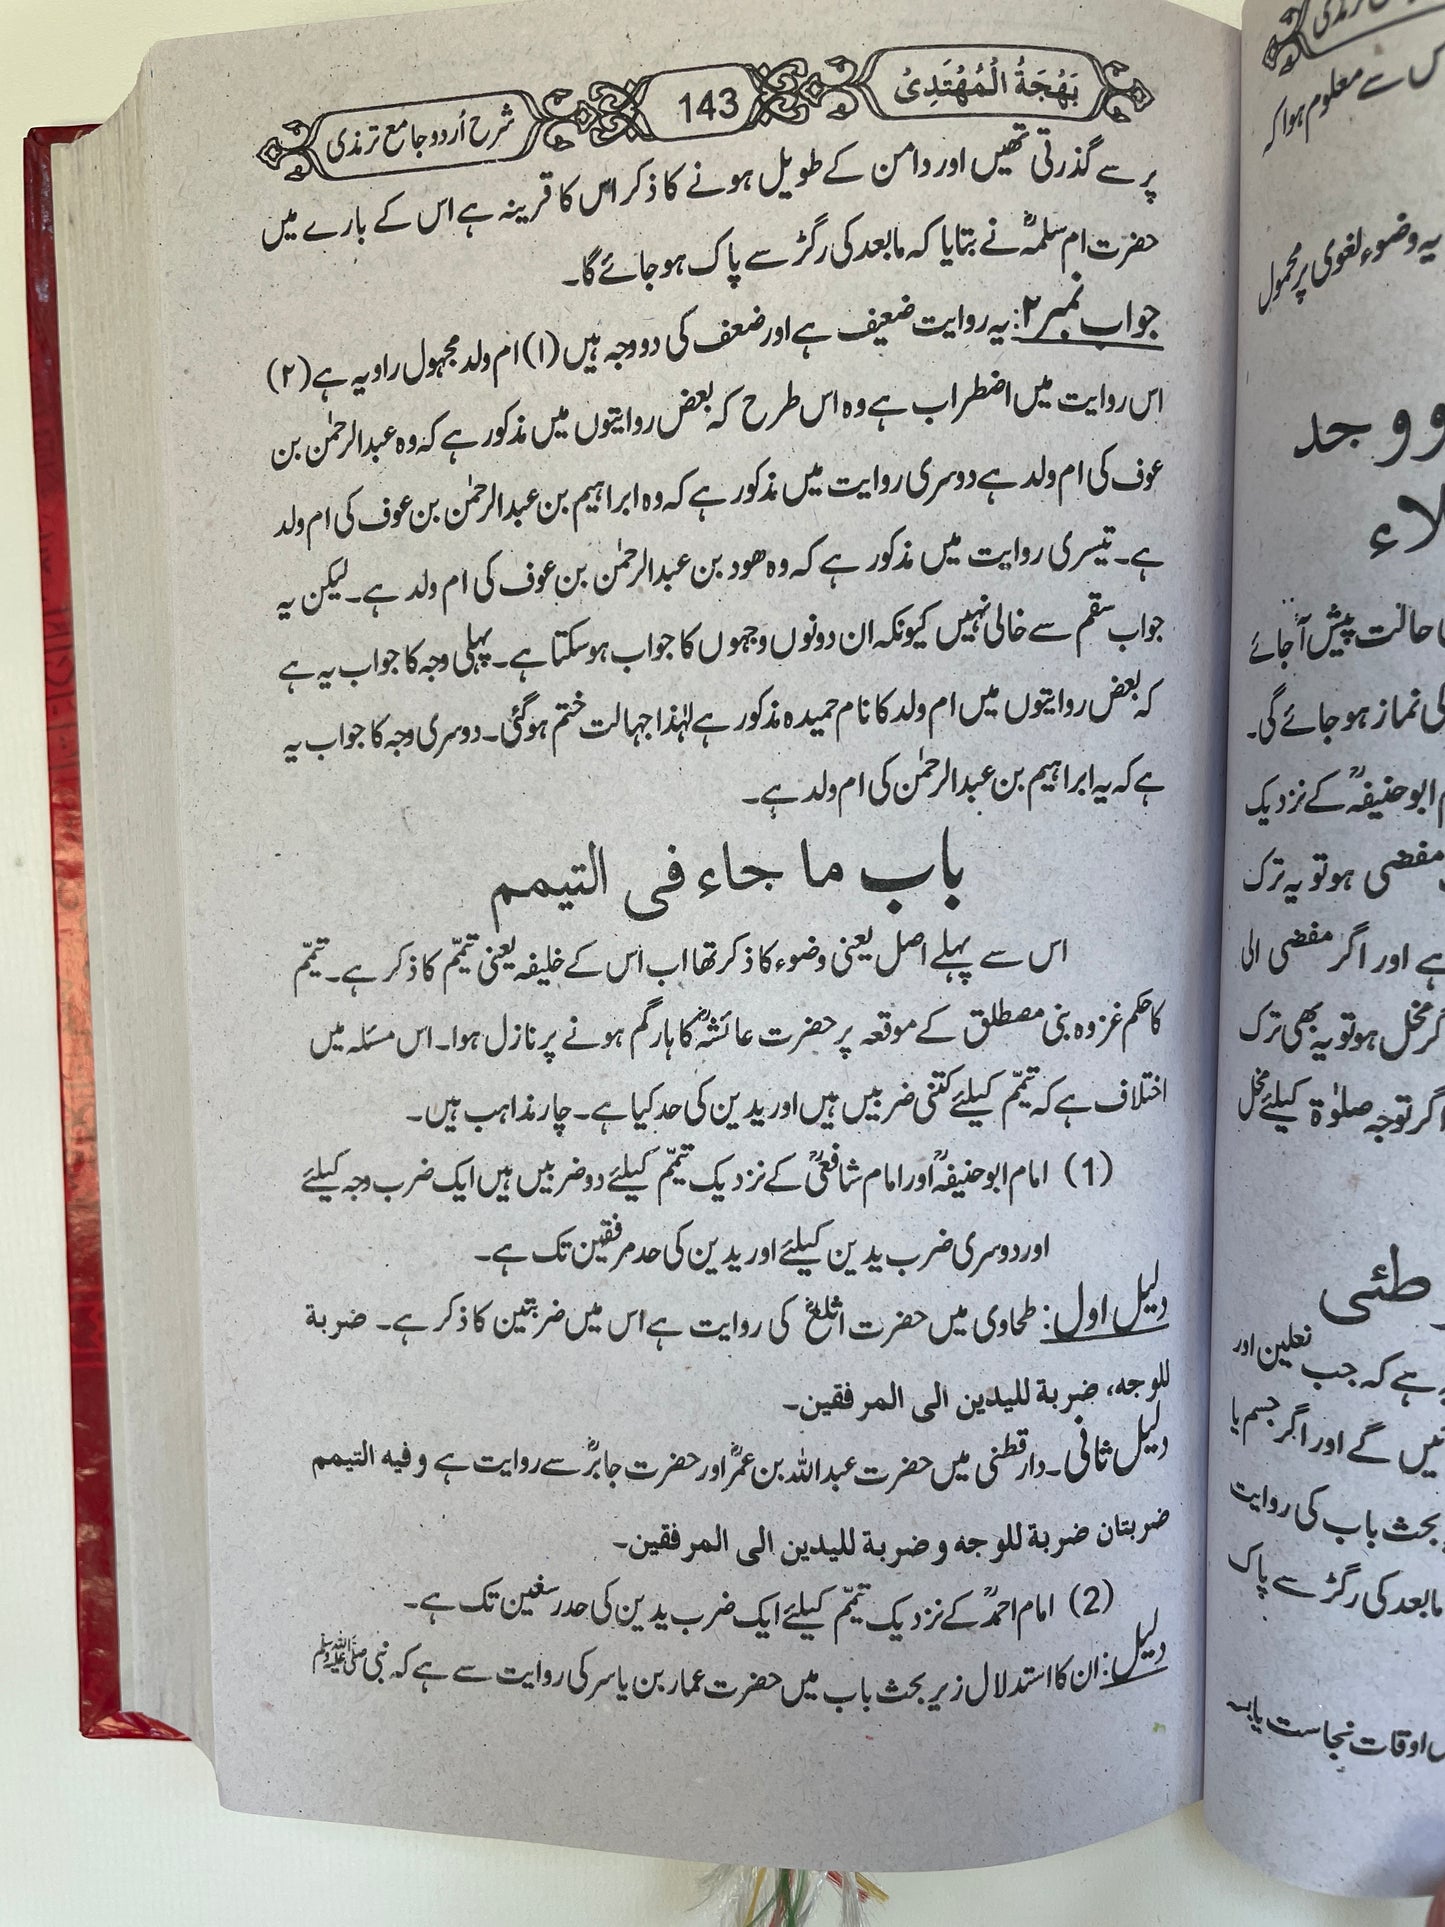 بَهْجَةُ الْمُهْتَدِیْ
143
شرح اُردو جامع ترمذی
پر سے گذرتی تھیں اور دامن کے طویل ہونے کا ذکر اس کا قرینہ ہے اس کے بارے میں
حضرت ام سلمہؓ نے بتایا کہ مابعد کی رگڑ سے پاک ہو جائے گا۔
جواب نمبر ۲: یہ روایت ضعیف ہے اور ضعف کی دو وجہ ہیں (۱) ام ولد مجہول راویہ ہے (۲)
اس روایت میں اضطراب ہے وہ اس طرح کہ بعض روایتوں میں مذکور ہے کہ وہ عبدالرحمٰن بن
عوف کی ام ولد ہے دوسری روایت میں مذکور ہے کہ وہ ابراہیم بن عبدالرحمٰن بن عوف کی ام ولد
ہے۔ تیسری روایت میں مذکور ہے کہ وہ ھود بن عبدالرحمٰن بن عوف کی ام ولد ہے۔ لیکن یہ
جواب سقم سے خالی نہیں کیونکہ ان دونوں وجہوں کا جواب ہو سکتا ہے۔ پہلی وجہ کا جواب یہ ہے
کہ بعض روایتوں میں ام ولد کا نام حمیدہ مذکور ہے لہٰذا جہالت ختم ہو گئی۔ دوسری وجہ کا جواب یہ
ہے کہ یہ ابراہیم بن عبدالرحمٰن کی ام ولد ہے۔
باب ما جاء فی التیمم
اس سے پہلے اصل یعنی وضوء کا ذکر تھا اب اس کے خلیفہ یعنی تیمّم کا ذکر ہے۔ تیمّم
کا حکم غزوہ بنی مصطلق کے موقعہ پر حضرت عائشہؓ کا ہار گم ہونے پر نازل ہوا۔ اس مسئلہ میں
اختلاف ہے کہ تیمّم کیلئے کتنی ضربیں ہیں اور یدین کی حد کیا ہے۔ چار مذاہب ہیں۔
(1) امام ابو حنیفہؒ اور امام شافعیؒ کے نزدیک تیمّم کیلئے دو ضربیں ہیں ایک ضرب وجہ کیلئے
اور دوسری ضرب یدین کیلئے اور یدین کی حد مرفقین تک ہے۔
دلیل اول: طحاوی میں حضرت اثلغؓ کی روایت ہے اس میں ضربتین کا ذکر ہے۔ ضربة
للوجه، ضربة للیدین الی المرفقین۔
دلیل ثانی۔ دار قطنی میں حضرت عبداللہ بن عمرؓ اور حضرت جابرؓ سے روایت ہے وفیه التیمم
ضربتان ضربة للوجه و ضربة للیدین الی المرفقین۔
(2) امام احمدؒ کے نزدیک تیمّم کیلئے ایک ضرب یدین کی حد رسغین تک ہے۔
دلیل: ان کا استدلال زیر بحث باب میں حضرت عمار بن یاسر کی روایت سے ہے کہ نبی ﷺ
س سے معلوم ہوا کہ
یہ وضوء لغوی پر محمول
و وجد
لاء
حالت پیش آ جائے
کی نماز ہو جائے گی۔
ابو حنیفہؒ کے نزدیک
مفضی ہو تو یہ ترک
ہے اور اگر مفضی الی
گر مخل ہو تو یہ بھی ترک
اگر توجہ صلوٰۃ کیلئے مخل
طئی
ہے کہ جب نعلین اور
گے اور اگر جسم یا
بحث باب کی روایت
مابعد کی رگڑ سے پاک
اوقات نجاست یابسہ